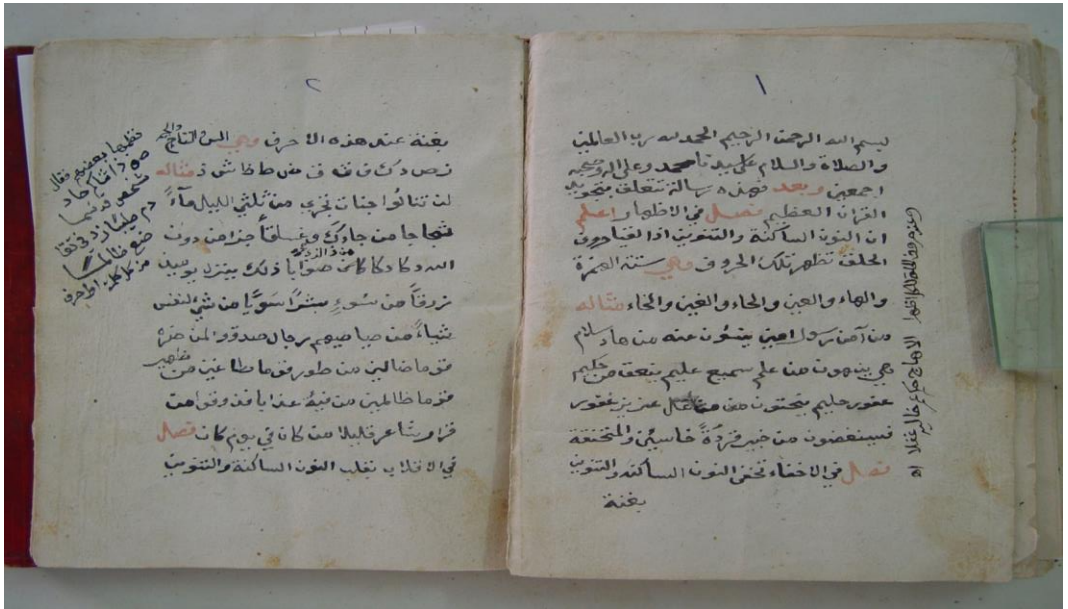 ١
بسم الله الرحمن الرحيم الحمد لله رب العالمين
والصلاة والسلام على سيدنا محمد وعلى اله وصحبه
اجمعين وبعد فهذه رسالة تتعلق بتجويد
القران العظيم فصل في الاظهار اعلم
ان النون الساكنة والتنوين اذا لقيا حروف
الحلق تظهر تلك الحروف وهي ستة الهمزة
والهاء والعين والحاء والغين والخاء مثاله
من آمن رسول امين ينئون عنه من هاد سلام
هي ينهون من علم سميع عليم ينعق من حكيم
غفور حليم ينحتون من غل عزيز غفور
فسينغضون من خير قردة خاسئين والمنخنقة
فصل في الاخفاء تخفى النون الساكنة والتنوين
بغنة
٢
بغنة عند هذه الاحرف وهي
مثاله
لن تنالوا جنات تجري من ثلثي الليل ماء
ثجاجا من جاءك
الله دكا دكا كان صوابا ذلك ينزل يومئذ
زرقا من سوء بشرا سويا من شيء النفس
شيئا من صياصيهم رجال صدقوا
قوما ضالين من طور قوما طاغين من ظهير
قوما ظالمين من فئة عذابا
قرار شاعر قليلا من كان في يوم كان فصل
في الاقلاب تقلب النون الساكنة والتنوين
نظمها بعضهم فقال
صف ذا ثنا كم جاد
شخص قد سما
دم طيبا زد في تقا
ضع ظالما
من كل كلمة